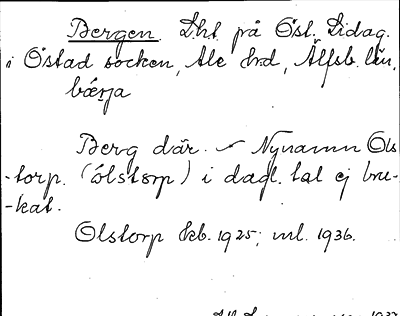 Bergen. Lht på Öst. Lidag.
i Östad socken, Ale hrd, Älfsb. län,
bǽrja
Berg där. – Nynamn Ols
-torp. (ólstorp) i dagl. tal ej bru-
-kat.
Olstorp kb. 1925; ml. 1936.